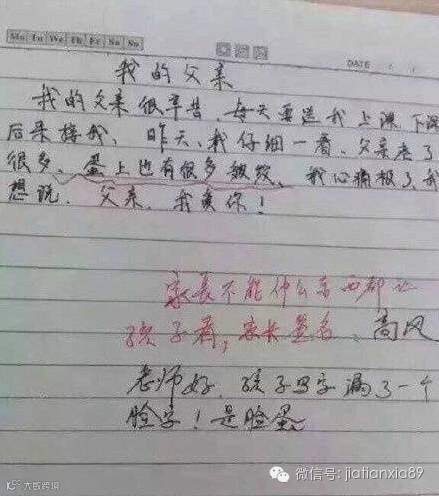 Mo Tu We Th Fr Sa Su
DATE
我的父亲
我的父亲很辛苦，每天要送我上课下课
后来接我、昨天、我仔细一看、父亲老了
很多、蛋上也有很多皱纹、我心痛极了、我
想说、父亲、我爱你！
家长不能什么东西都让
孩子看，家长签名、高风
老师好、孩子写字漏了一个
脸字！是脸蛋
微信号: jiatianxia89
大数跨境